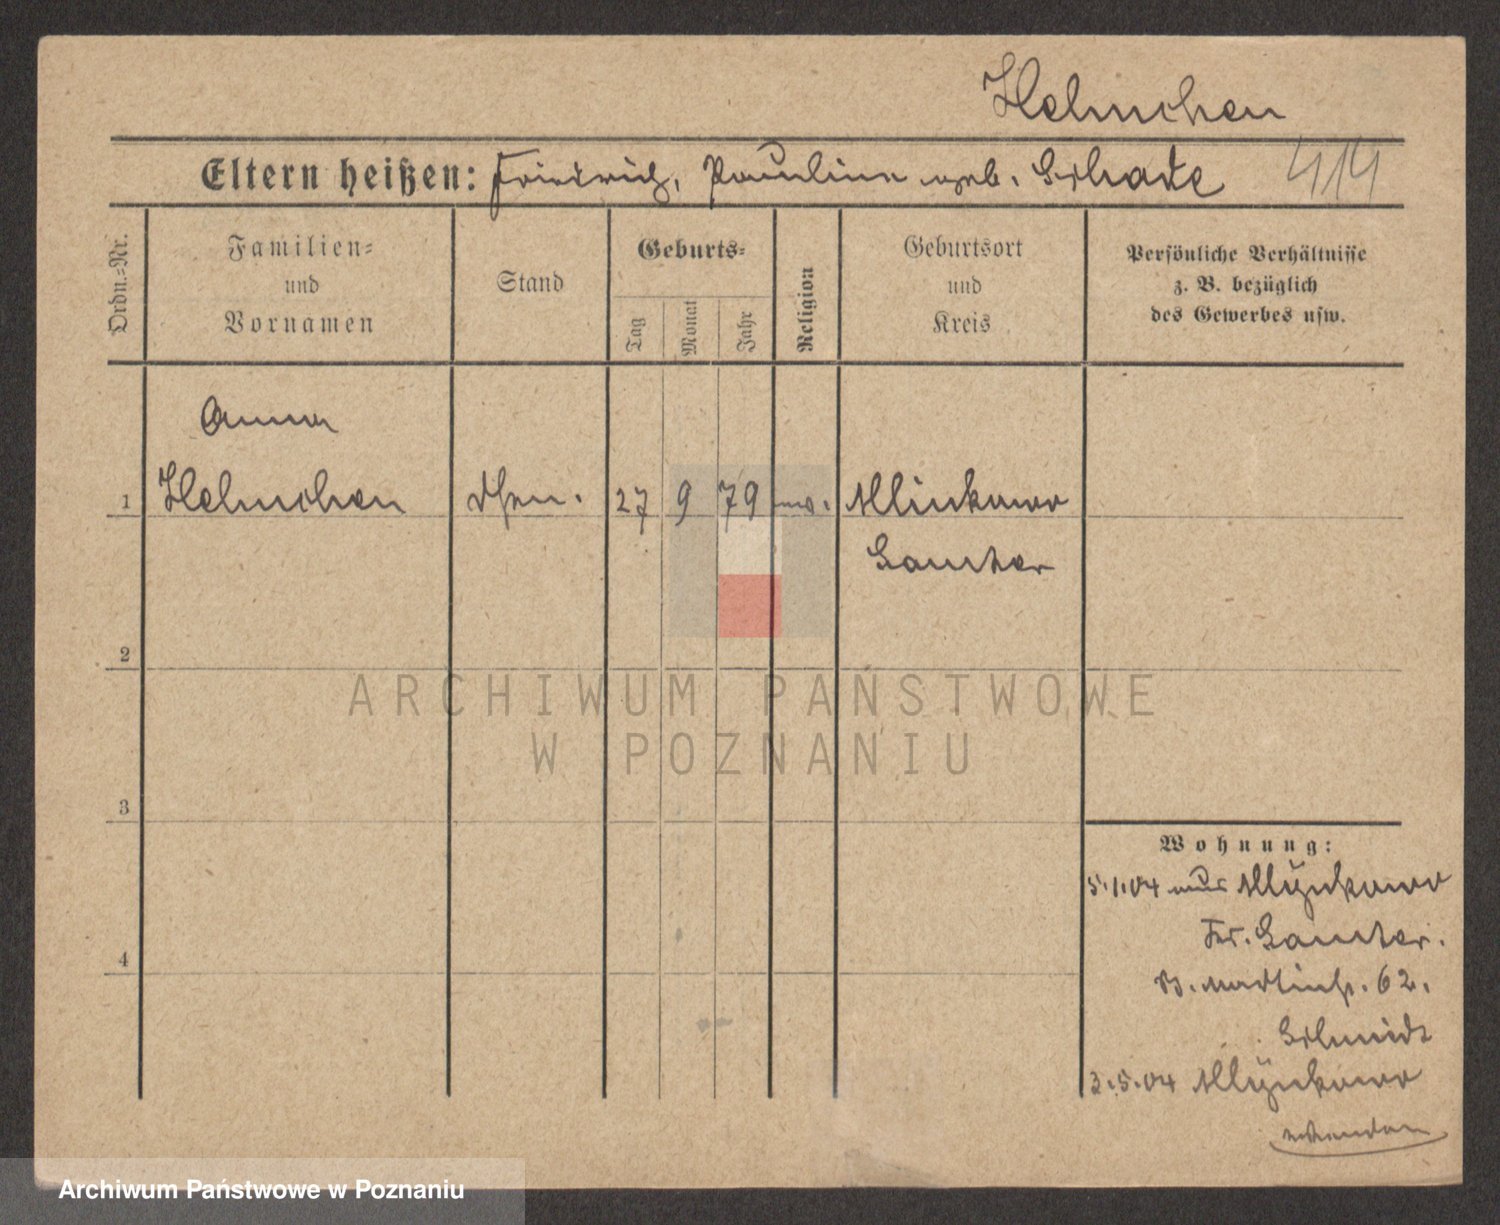 Helmchen
Eltern heißen: Friedrich, Pauline geb. Schade 414
Ordn.-Nr.
Familien-
und
Vornamen
Stand
Geburts-
Tag
Monat
Jahr
Religion
Geburtsort
und
Kreis
Persönliche Verhältnisse
z. B. bezüglich
des Gewerbes usw.
Anna
1 Helmchen 27 9 79 Mlinkowo
Samter
2
ARCHIWUM PAŃSTWOWE
W POZNANIU
3
Wohnung:
5.1.04 aus Mlynkowo
Kr. Samter.
St. Martinstr. 62.
4
Schmidt
3.5.04 Mlynkowo
Archiwum Państwowe w Poznaniu